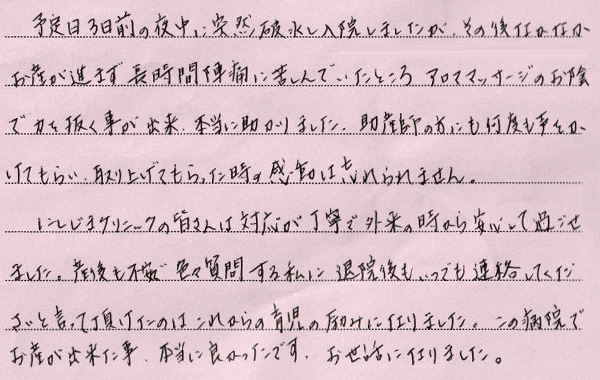 予定日3日前の夜中に突然破水し入院しましたが、その後なかなか
お産が進まず長時間陣痛に苦しんでいたところ アロママッサージのお陰
で力を抜く事が出来、本当に助かりました。助産師の方にも何度も声をか
けてもらい、取り上げてもらった時の感動は忘れられません。
にしじまクリニックの皆さんは対応が丁寧で外来の時から安心して過ごせ
ました。産後も不安で色々質問する私に退院後もいつでも連絡してくだ
さいと言って頂けたのはこれからの育児の励みになりました。この病院で
お産が出来た事、本当に良かったです。お世話になりました。